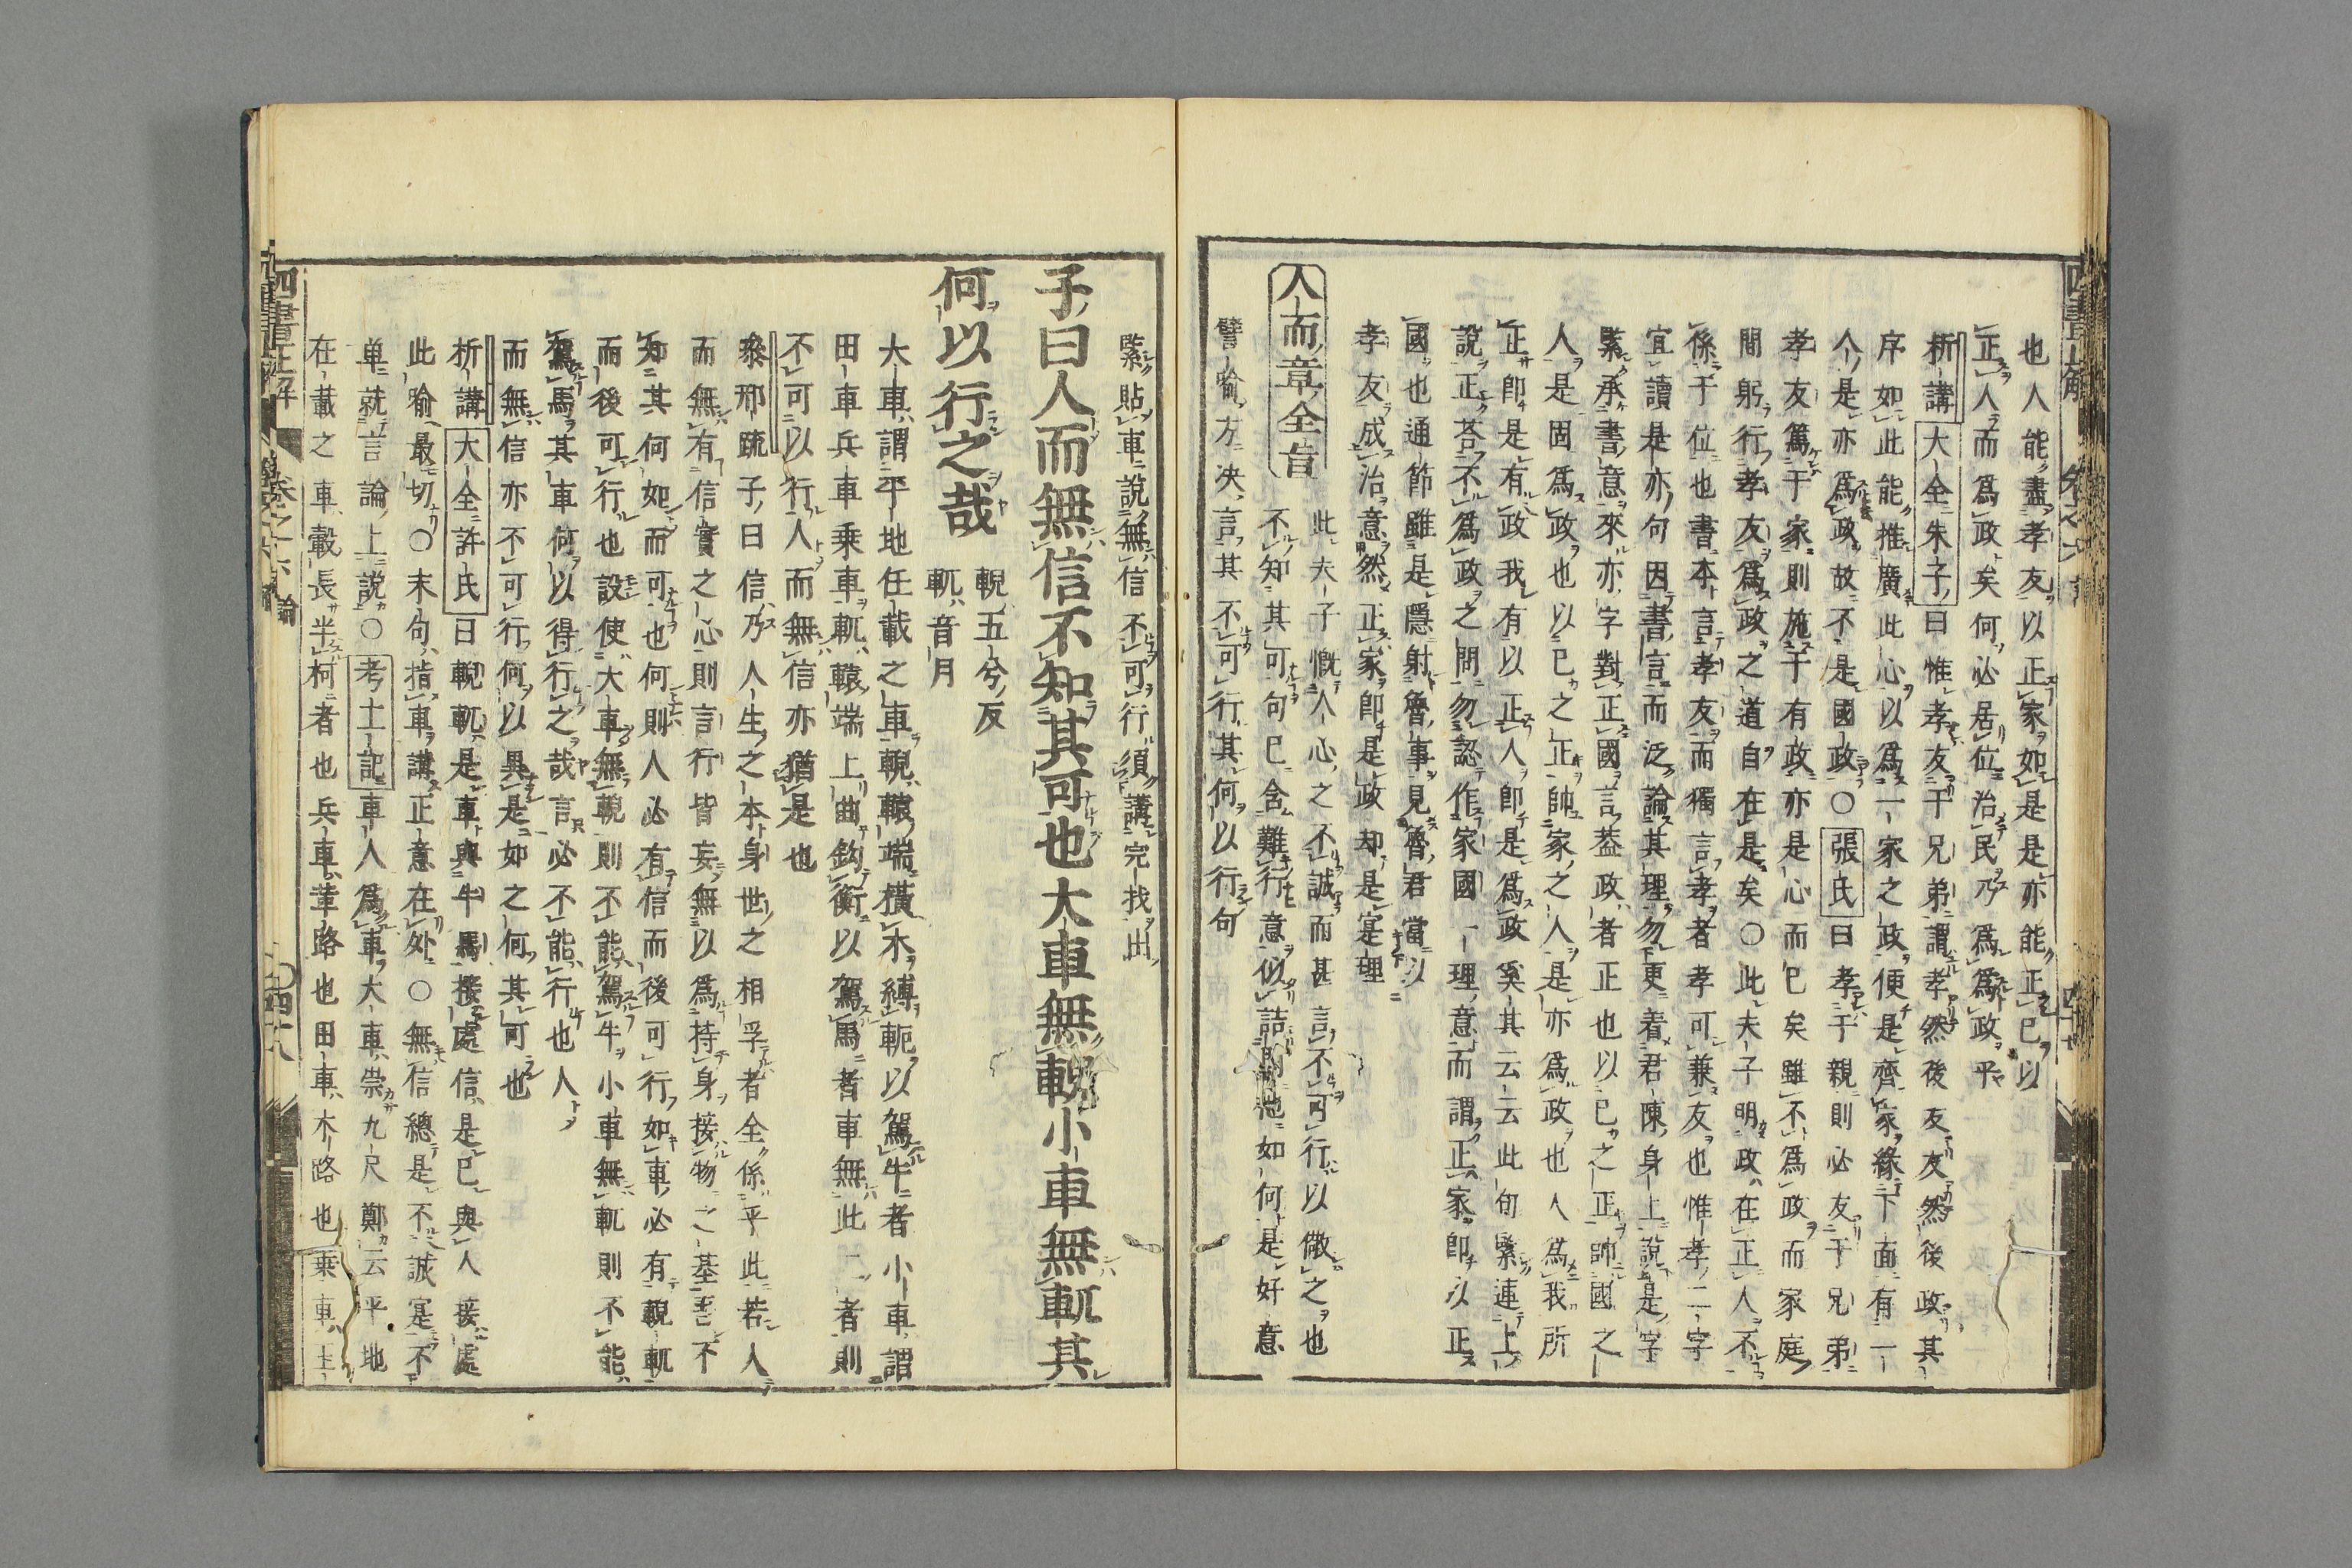 也人能盡孝友以正家如是是亦能正己以
正人而爲政矣何必居位治民乃爲爲政乎
析講大全朱子曰惟孝友于兄弟謂孝然後友友然後政其
序如此能推廣此心以爲一家之政便是齊家緣下面有一
是亦爲政故不是國政○張氏曰孝于親則必友于兄弟
孝友篤于家則施于有政亦是心而已矣雖不爲政而家庭
間躬行孝友爲政之道自在是矣○此夫子明政在正人不
係于位也書本言孝友而獨言孝者孝可兼友也惟孝二字
宜讀是亦句因書言而泛論其理勿更着君陳身上說是字
緊承書意來亦字對正國言蓋政者正也以己之正帥國之
人是固爲政也以己之正帥家之人是亦爲政也人爲我所
正即是有政我有以正人即是爲政奚其云云此句緊連上
說正荅不爲政之問勿認作家國一理意而謂正家即以正
國也通節雖是隱射魯事見魯君當以
孝友成治意然正家即是政却是寔理
人而章全旨
此夫子慨人心之不誠而甚言不可行以儆之也
不知其可句已含難行意似詰問他如何是好意
譬喻方決言其不可行其何以行句
緊貼車說無信不可行須講完找出
子曰人而無信不知其可也大車無輗小車無軏其
何以行之哉
輗五兮反
軏音月
大車謂平地任載之車輗轅端橫木縛軛以駕牛者小車謂
田車兵車乘車軏轅端上曲鈎衡以駕馬者車無此二者則
不可以行人而無信亦猶是也
叅邢疏子曰信乃人生之本身世之相孚者全係乎此若人
而無有信實之心則言行皆妄無以爲持身接物之基吾不
知其何如而可也何則人必有信而後可行如車必有輗軏
而後可行也設使大車無輗則不能駕牛小車無軏則不能
駕馬其車何以得行之哉言必不能行也人
而無信亦不可行何以異是如之何其可也
析講大全許氏曰輗軏是車與牛馬接處信是己與人接處
此喻最切○末句指車講正意在処○無信總是不誠寔不
单就言論上說○考工記車人爲車大車崇九尺鄭云平地
在載之車轂長半柯者也兵車革路也田車木路也乗車
四書正解
卷之六
論
四十八